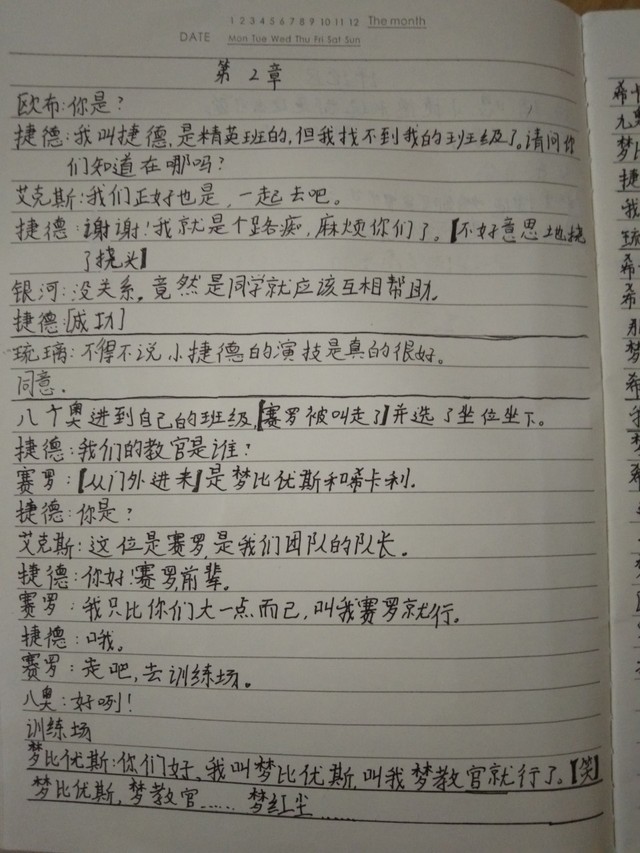 1 2 3 4 5 6 7 8 9 10 11 12 The month
DATE Mon Tue Wed Thu Fri Sat Sun
第 2 章
欧布:你是?
捷德:我叫捷德,是精英班的,但我找不到我的班级了。请问你
们知道在哪吗?
艾克斯:我们正好也是,一起去吧。
捷德:谢谢!我就是个路痴,麻烦你们了。【不好意思地挠
了挠头】
银河:没关系,竟然是同学就应该互相帮助。
捷德:[成功]
琉璃:不得不说小捷德的演技是真的很好。
同意.
八个奥进到自己的班级,【赛罗被叫走了】并选了坐位坐下。
捷德:我们的教官是谁?
赛罗:【从门外进来】是梦比优斯和希卡利.
捷德:你是?
艾克斯:这位是赛罗,是我们团队的队长。
捷德:你好!赛罗前辈。
赛罗:我只比你们大一点而已,叫我赛罗就行。
捷德:哦。
赛罗:走吧,去训练场。
八奥:好咧!
训练场
梦比优斯:你们好,我叫梦比优斯,叫我梦教官就行了。【笑】
梦比优斯,梦教官…… 梦红尘……
希
九
梦
捷
我
琉
希
希
那
梦
希
我
梦